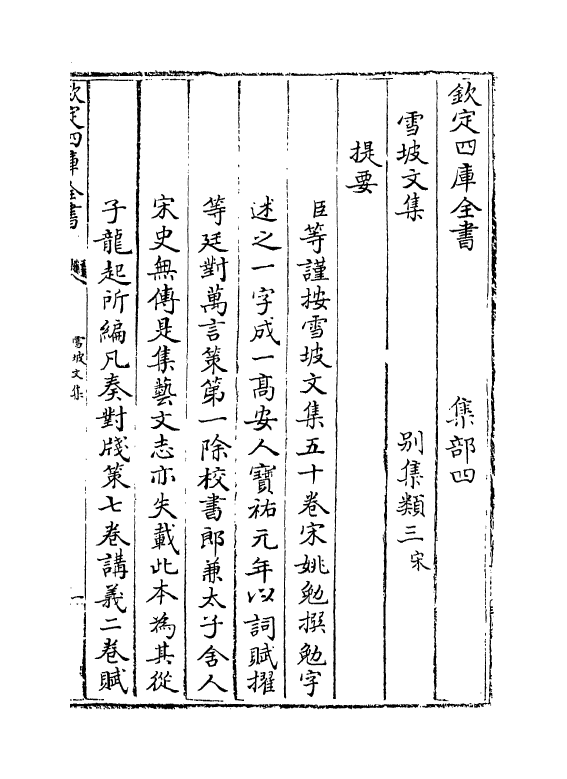 欽定四庫全書　集部四
雪坡文集　別集類三宋
提要
臣等謹按雪坡文集五十卷宋姚勉撰勉字
述之一字成一高安人寶祐元年以詞賦擢
等廷對萬言策第一除校書郎兼太子舍人
宋史無傳是集藝文志亦失載此本為其從
子龍起所編凡奏對牋策七卷講義二卷賦
欽定四庫全書
雪坡文集
一